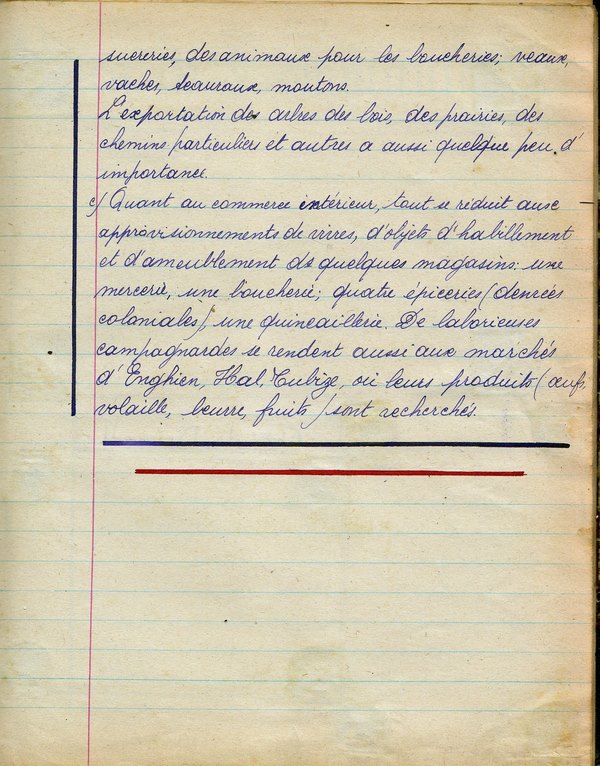 sucreries, des animaux pour les boucheries; veaux,
vaches, taureaux, moutons.
L'exportation des arbres des bois, des prairies, des
chemins particuliers et autres a aussi quelque peu d'
importance.
c) Quant au commerce intérieur, tout se réduit aux
approvisionnements de vivres, d'objets d'habillement
et d'ameublement de quelques magasins: une
mercerie, une boucherie; quatre épiceries (denrées
coloniales), une quincaillerie. De laborieuses
campagnardes se rendent aussi aux marchés
d'Enghien, Hal, Tubize, où leurs produits (œufs
volaille, beurre, fruits) sont recherchés.